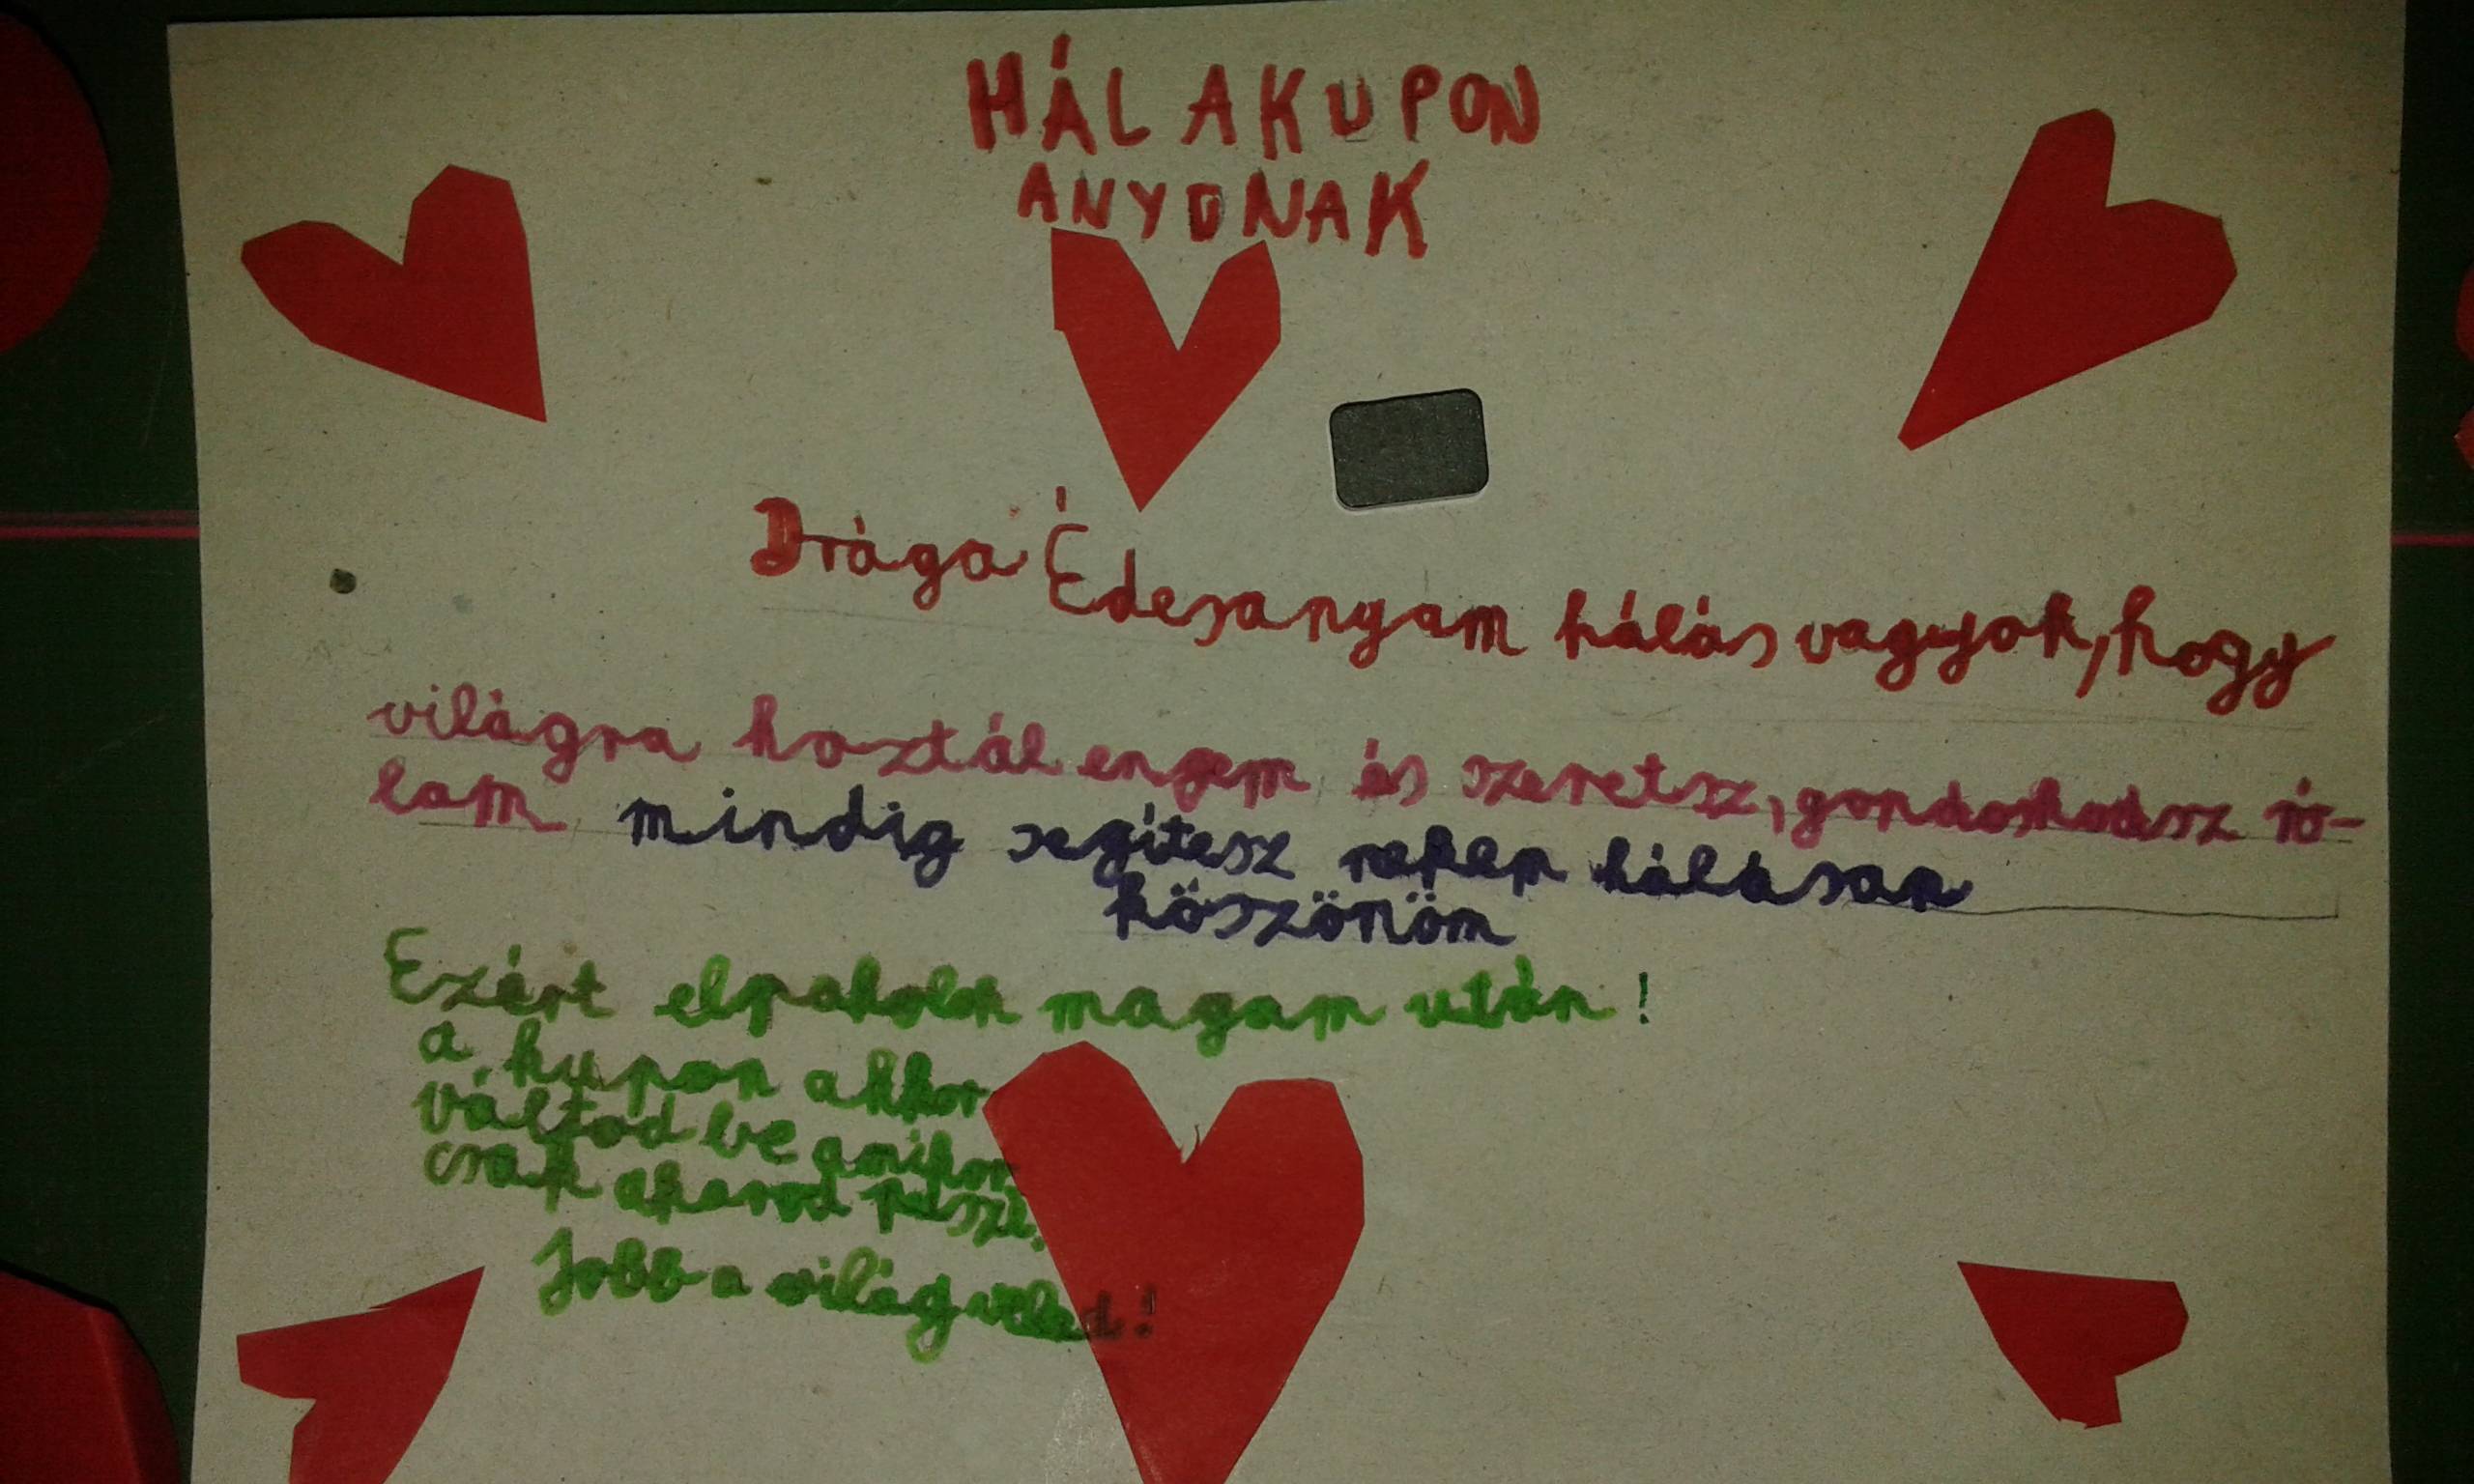 HÁLAKUPON
ANYUNAK
Drága Édesanyam hálás vagyok, hogy
világra hoztál engem és szeretsz, gondoskodsz ró-
lam mindig segítesz nekem hálásan
köszönöm
Ezért elpakolok magam után!
a kupon akkor
váltod be amikor
csak akarod puszi!
Jobb a világ veled!